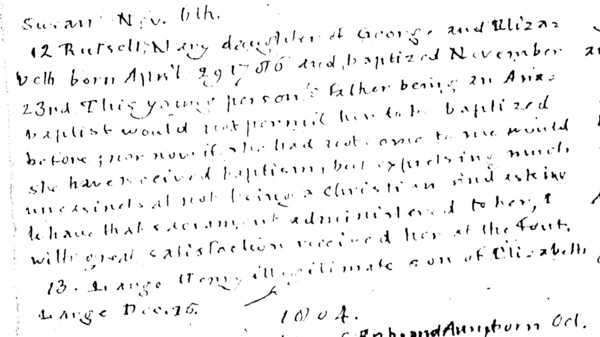 Susan Nov. 6th.
12 Russell, Mary daughter of George and Eliza=
beth born April 29 1786 and baptized November
23rd This young person's Father being an Ana=
baptist would not permit her to be baptized
before; nor now if she had not come to me would
she have received baptism, but expressing much
uneasiness at not being a Christian and asking
to have that sacrament administered to her, I
with great satisfaction received her at the Font.
13. Large Henry illegitimate son of Elizabeth
Large Dec. 25.
1804.
Ann born Oct.